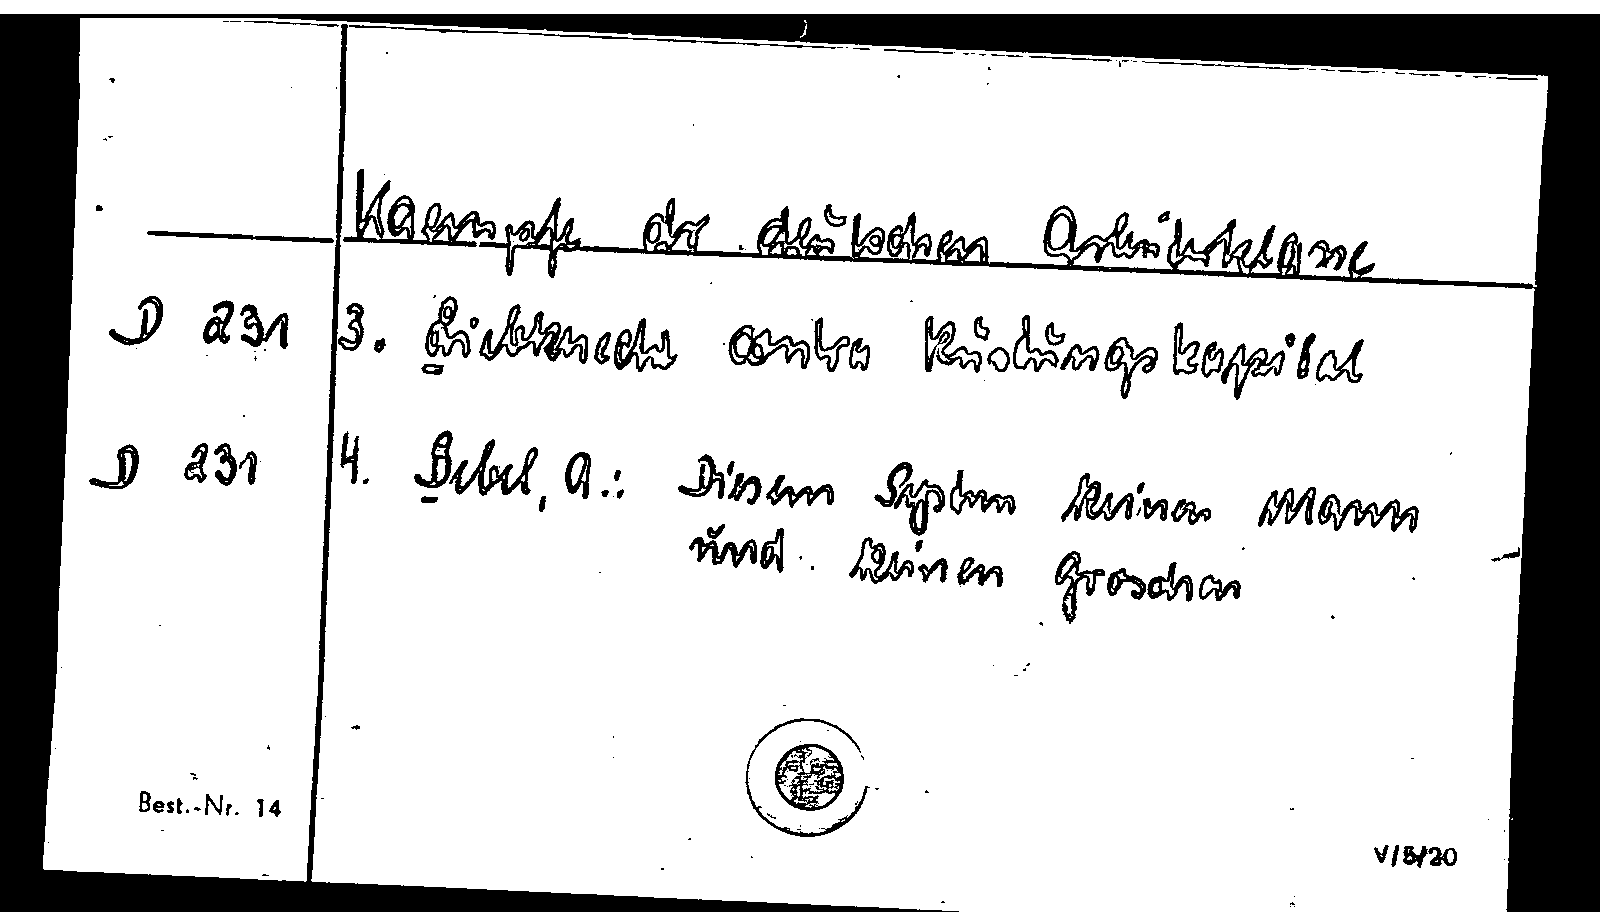 Kaempfe der deutschen Arbeiterklasse
D 231 3. Liebknecht contra Rüstungskapital
D 231 4. Bebel, A.: Diesem System keinen Mann
und keinen Groschen
Best.-Nr. 14
V/5/20